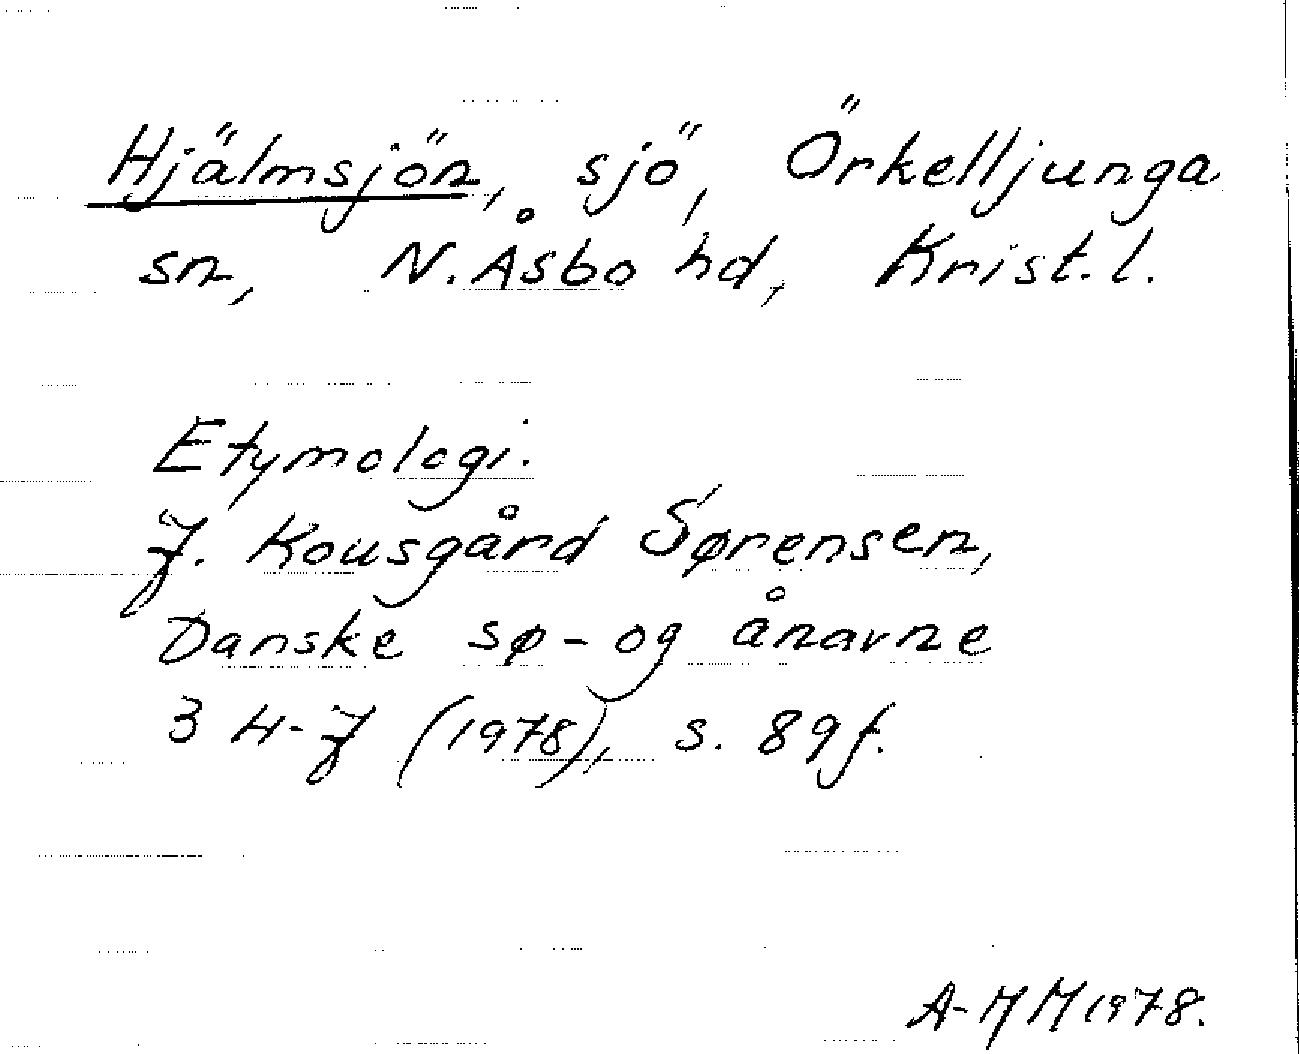 Hjälmsjön, sjö, Örkelljunga
sn, N. Åsbo hd, Krist. l.
Etymologi.
J. Kousgård Sørensen,
Danske sø- og ånavne
3 H-J (1978), s. 89 f.
A-MM 1978.